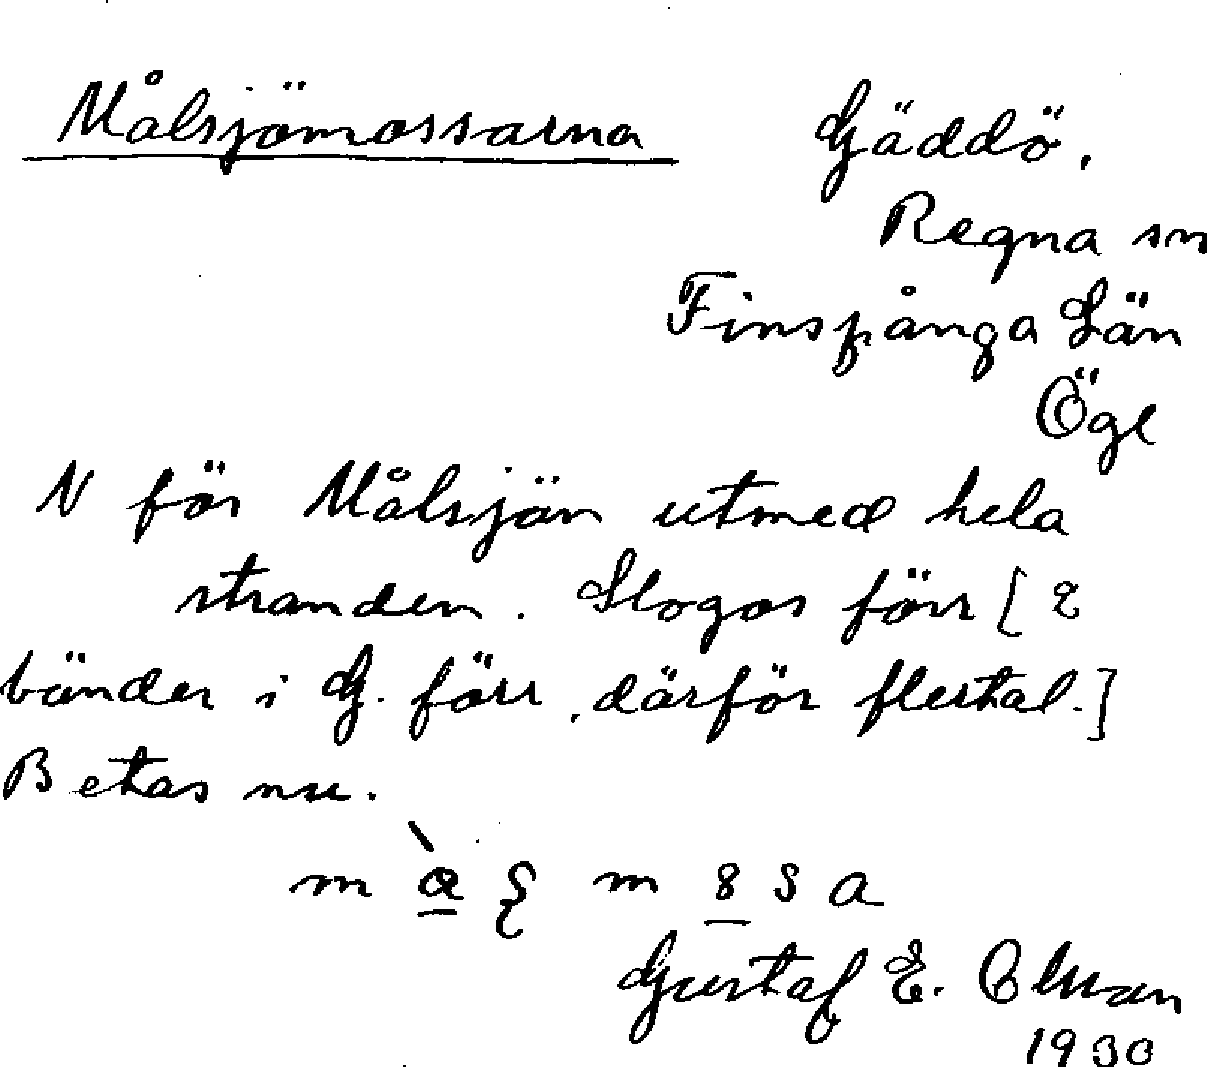 Målsjömossarna Gäddö,
Regna sn
Finspånga Län
Ögl
N för Målsjön utmed hela
stranden. Slogos förr [2
bönder i G. förr, därför flertal.]
Betas nu.
m m a
Gustaf E.
1930